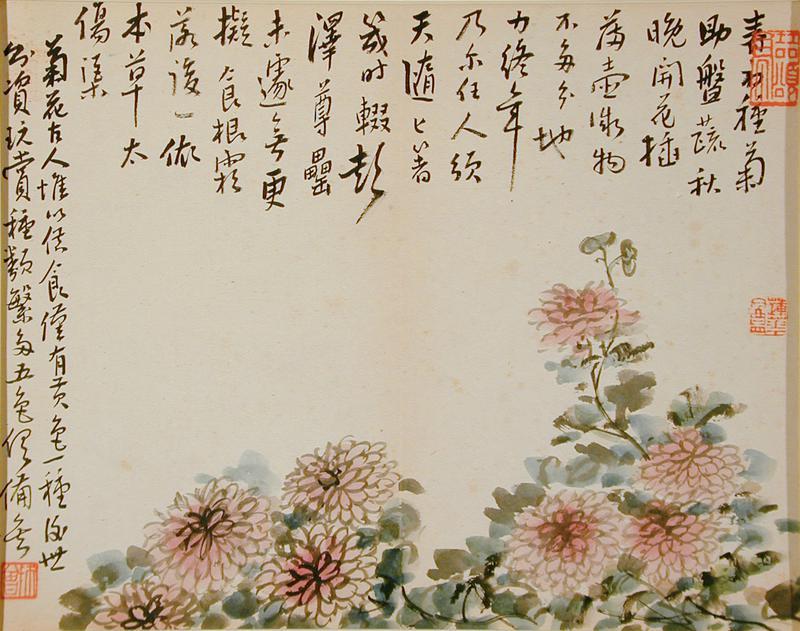 春初種菊
助盤蔬秋
晚開花插
壺微物
不多分地
力終年
乃尔任人須
天隨匕箸
幾时輟彭
澤尊罍
未遽無更
擬食根霜
落後一依
本草太
傷渠
菊花古人惟以供食僅有黃色一種後世
資玩賞種類繁多五色俱備